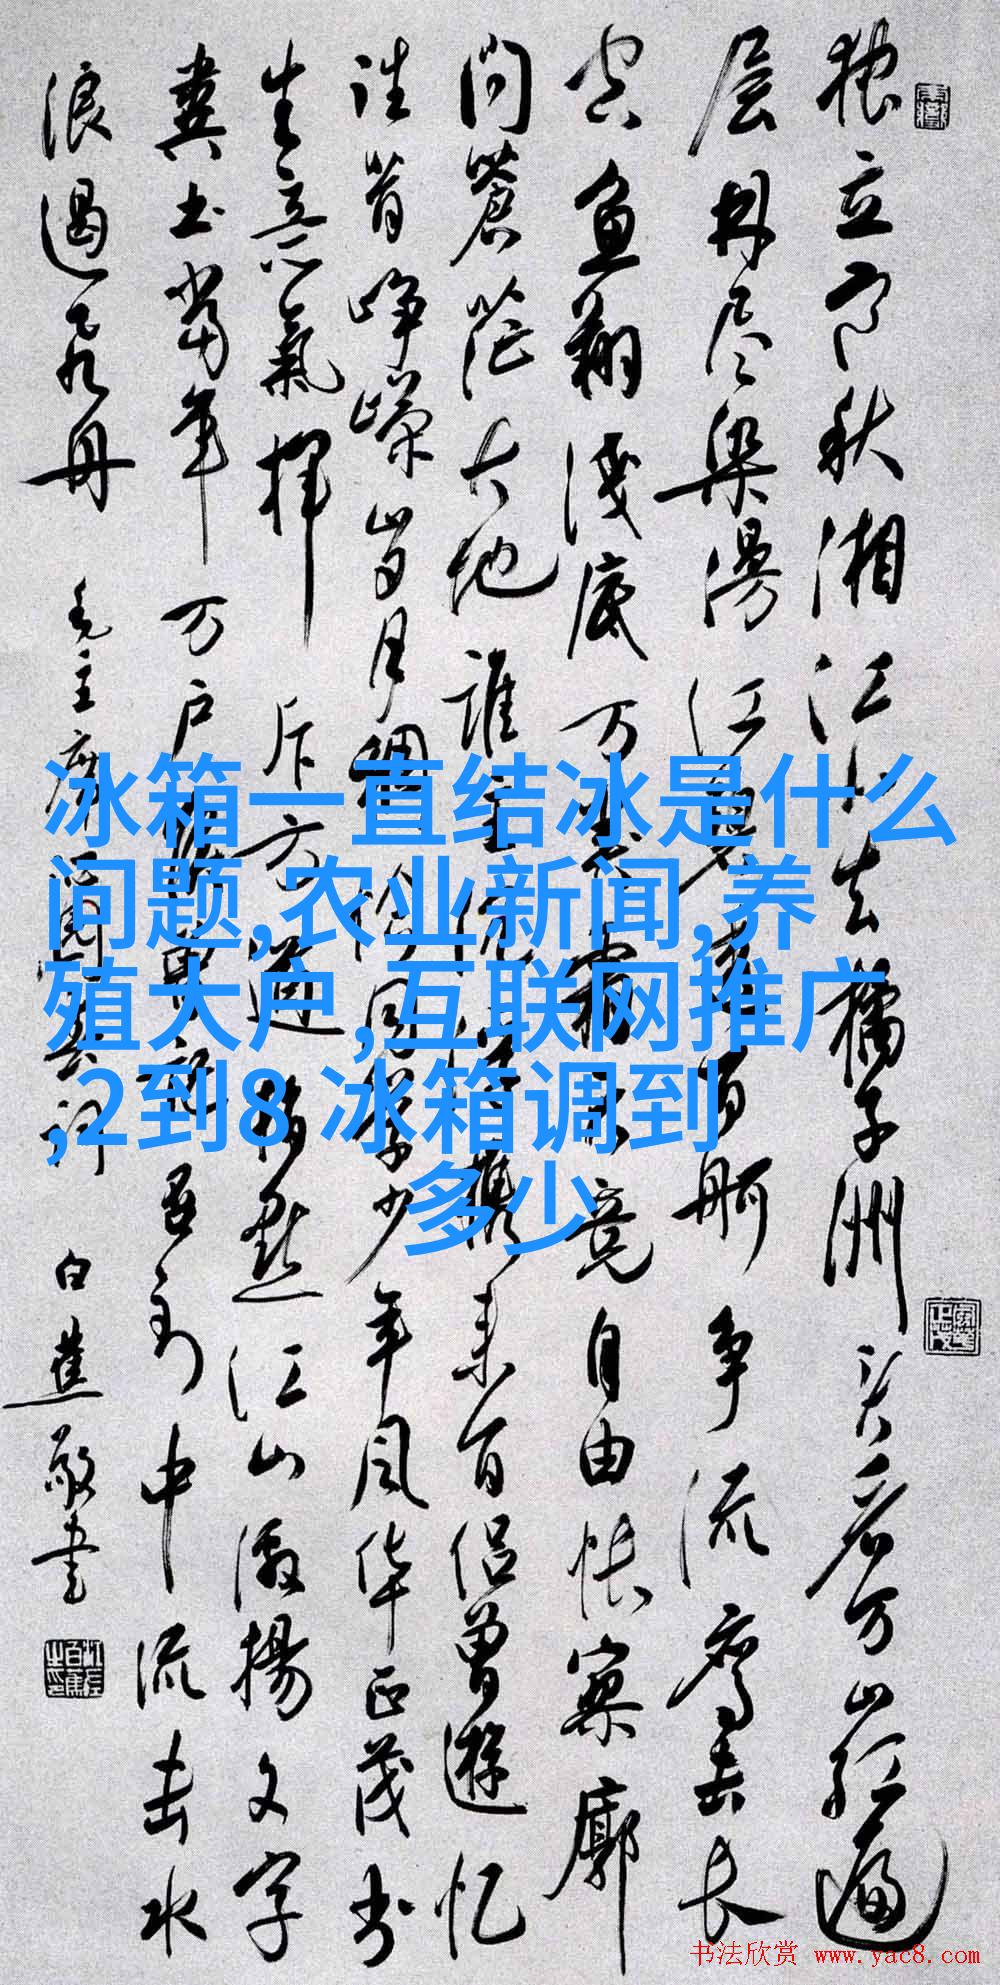 独立寒秋湘江北去橘子洲头看万山红遍
层林尽染漫江碧透百舸争流鹰击长
空鱼翔浅底万类霜天竞自由怅寥廓
问蒼茫大地谁主沉浮携来百侣曾遊忆
往昔峥嵘岁月稠恰同学少年风华正茂书
生意氣揮斥方遒指点江山激揚文字
粪土当年万户侯曾记否到中流击水
浪遏飞舟 毛主席沁园春词 白蕉敬書
冰箱一直结冰是什么
问题,农业新闻,养
殖大户,互联网推广
,2到8 冰箱调到
多少
书法欣赏 www.yac8.com